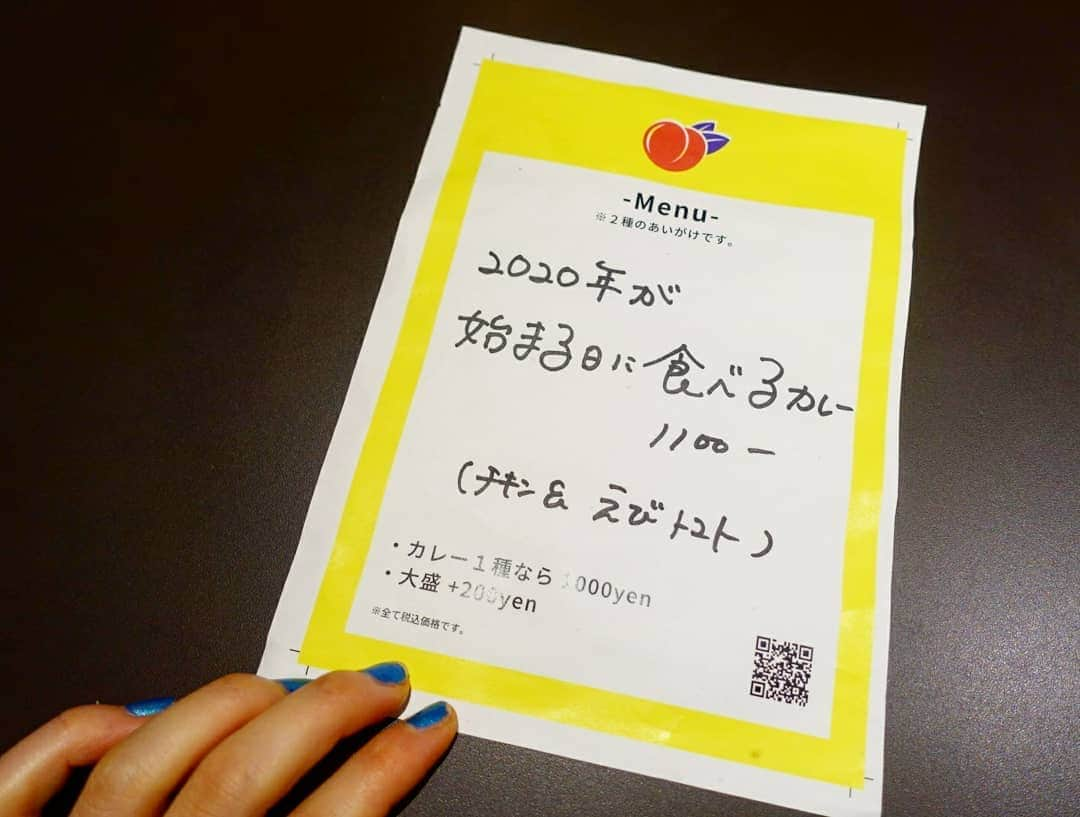 -Menu-
※２種のあいがけです。
2020年が
始まる日に食べるカレー
1100ー
(チキン& えびトマト)
・カレー１種なら 1000yen
・大盛 +200yen
※全て税込価格です。